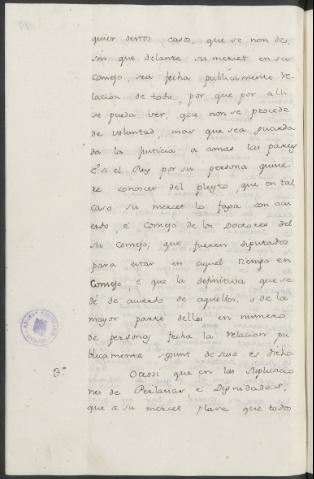 quier destos casos, que se non de,
sin que delante su merced en su
Consejo, sea fecha publicamente re
lacion de todo, por que por alli
se pueda ver, que non se procede
de voluntad, mas que sea guarda
da la Justicia a amas las partes
E si el Rey por su persona quisie
re conocer del pleyto, que en tal
caso su merced lo faga con acu
erdo e Consejo de los Doctores del
su Consejo, que fueren diputados
para estar en aquel tiempo en
Consejo, e que la definitiva que se
dé de acuerdo de aquellos, o de la
mayor parte dellos en numero
de personas fecha la relacion pu
blicamente segunt de suso es dicho
3º Otrossi que en las suplicacio
nes de Perlacias e Dignidades,
que a su merced plase que todos